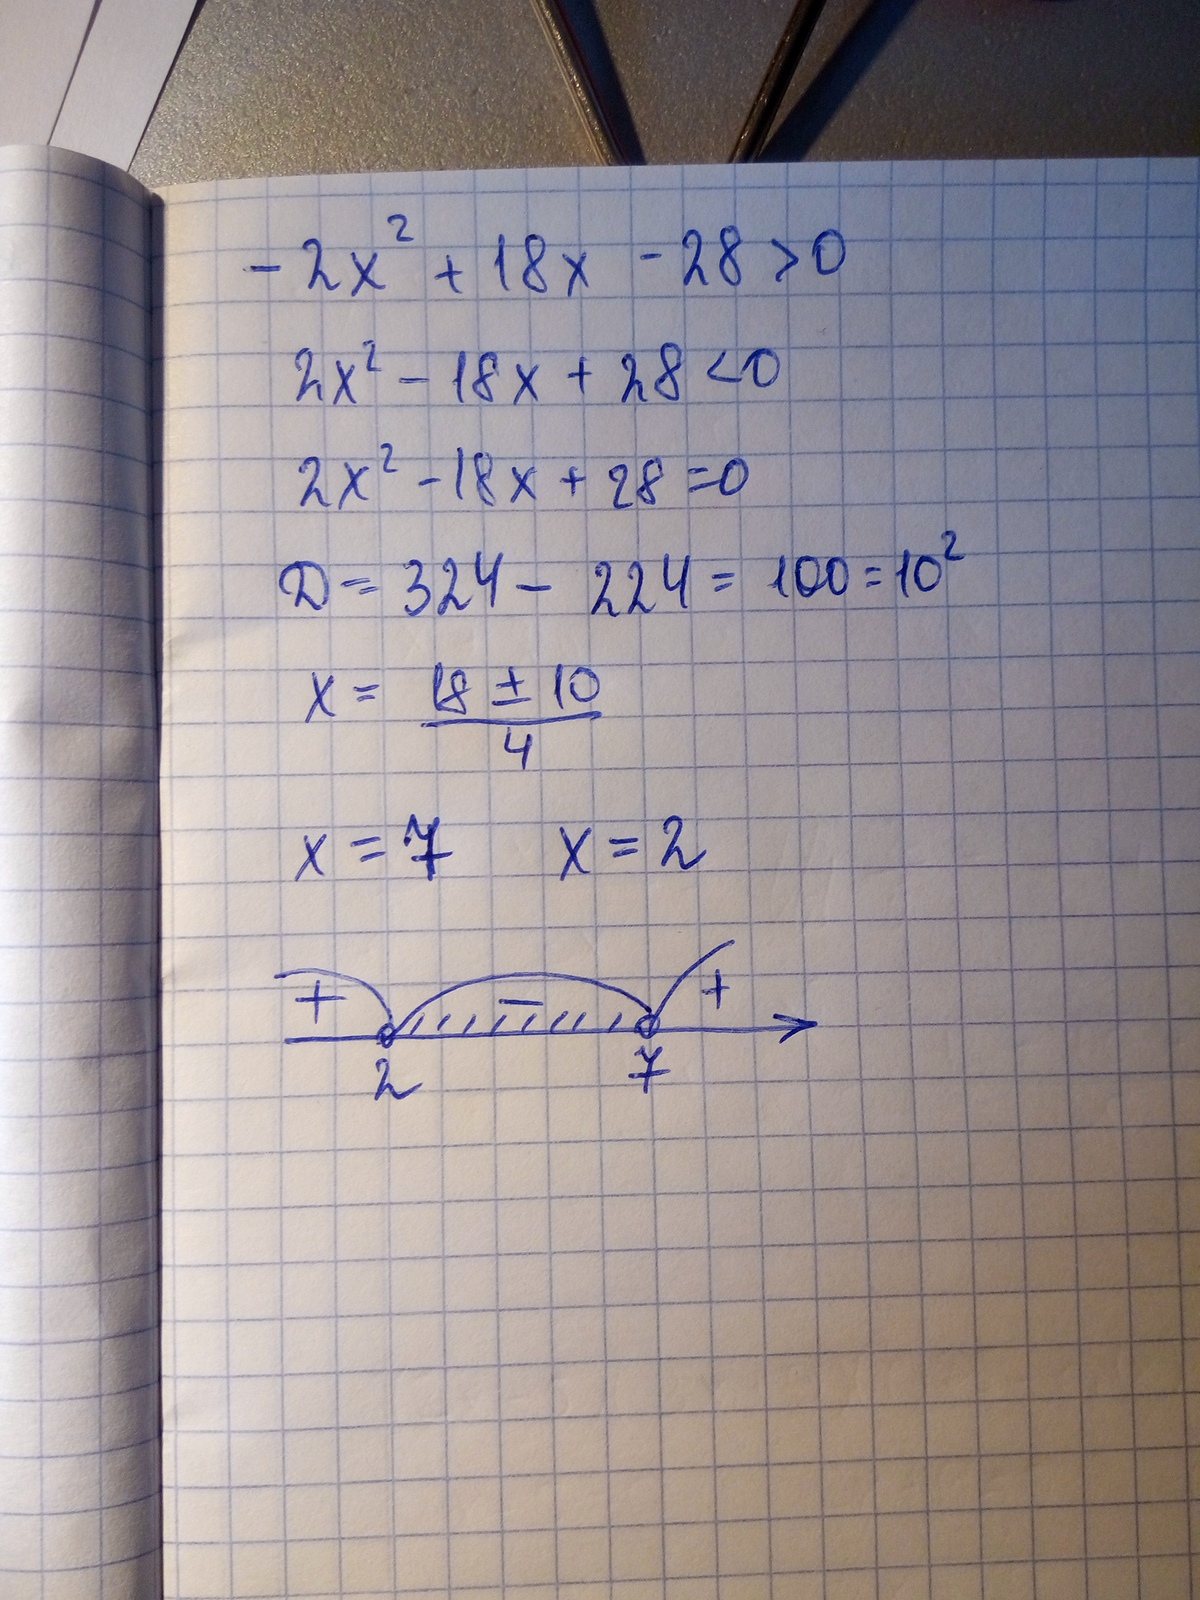 -2x² + 18x - 28 > 0
2x² - 18x + 28 < 0
2x² - 18x + 28 = 0
D = 324 - 224 = 100 = 10²
x = (18 ± 10)/4
x = 7 x = 2
+ - +
2 7